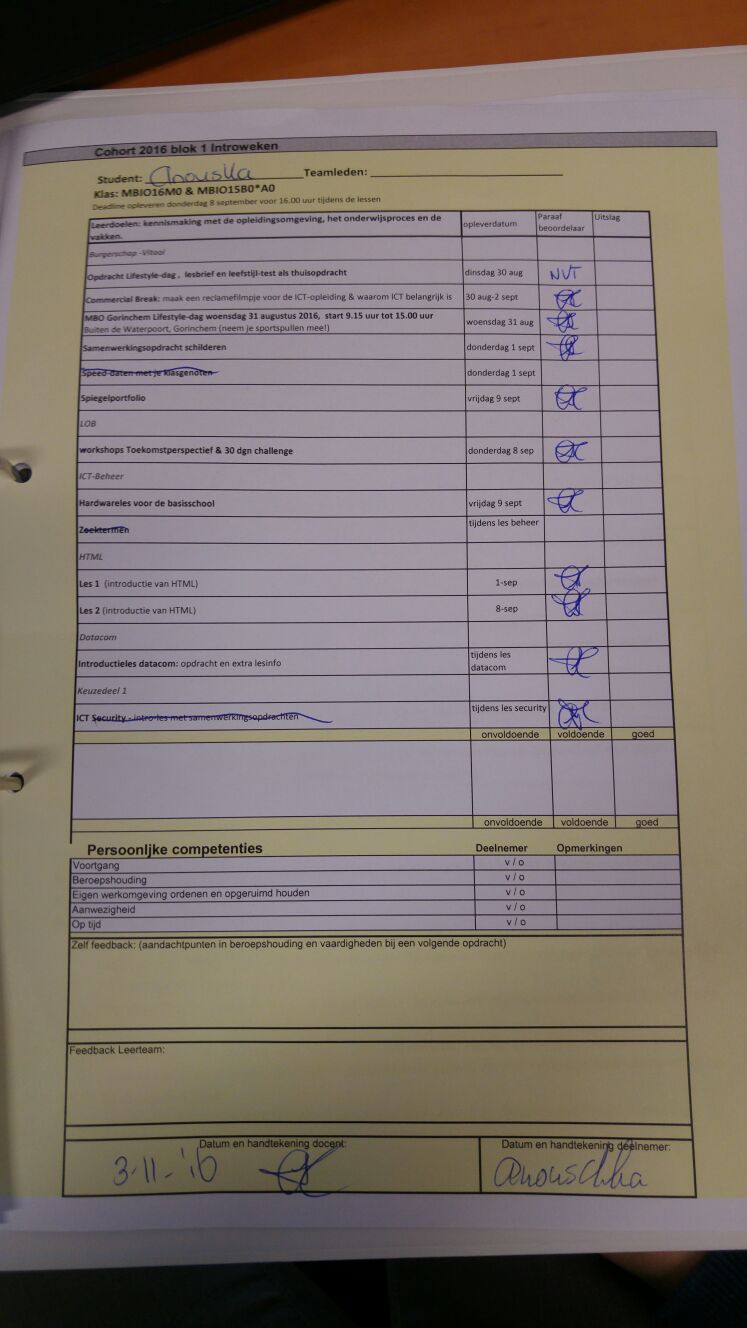 Cohort 2016 blok 1 Introweken
Student: Anouska Teamleden:
Klas: MBIO16M0 & MBIO15B0*A0
Deadline opleveren donderdag 8 september voor 16.00 uur tijdens de lessen
Leerdoelen: kennismaking met de opleidingsomgeving, het onderwijsproces en de vakken. opleverdatum Paraaf beoordelaar Uitslag
Burgerschap -Vitaal
Opdracht Lifestyle-dag , lesbrief en leefstijl-test als thuisopdracht dinsdag 30 aug NVT
Commercial Break: maak een reclamefilmpje voor de ICT-opleiding & waarom ICT belangrijk is 30 aug-2 sept
MBO Gorinchem Lifestyle-dag woensdag 31 augustus 2016, start 9.15 uur tot 15.00 uur
Buiten de Waterpoort, Gorinchem (neem je sportspullen mee!) woensdag 31 aug
Samenwerkingsopdracht schilderen donderdag 1 sept
Speed-daten met je klasgenoten donderdag 1 sept
Spiegelportfolio vrijdag 9 sept
LOB
workshops Toekomstperspectief & 30 dgn challenge donderdag 8 sep
ICT-Beheer
Hardwareles voor de basisschool vrijdag 9 sept
Zoektermen tijdens les beheer
HTML
Les 1 (introductie van HTML) 1-sep
Les 2 (introductie van HTML) 8-sep
Datacom
Introductieles datacom: opdracht en extra lesinfo tijdens les datacom
Keuzedeel 1
ICT Security - intro-les met samenwerkingsopdrachten tijdens les security
onvoldoende voldoende goed
onvoldoende voldoende goed
Persoonlijke competenties Deelnemer Opmerkingen
Voortgang v / o
Beroepshouding v / o
Eigen werkomgeving ordenen en opgeruimd houden v / o
Aanwezigheid v / o
Op tijd v / o
Zelf feedback: (aandachtpunten in beroepshouding en vaardigheden bij een volgende opdracht)
Feedback Leerteam:
Datum en handtekening docent: Datum en handtekening deelnemer:
3-11-'16 Anouschka